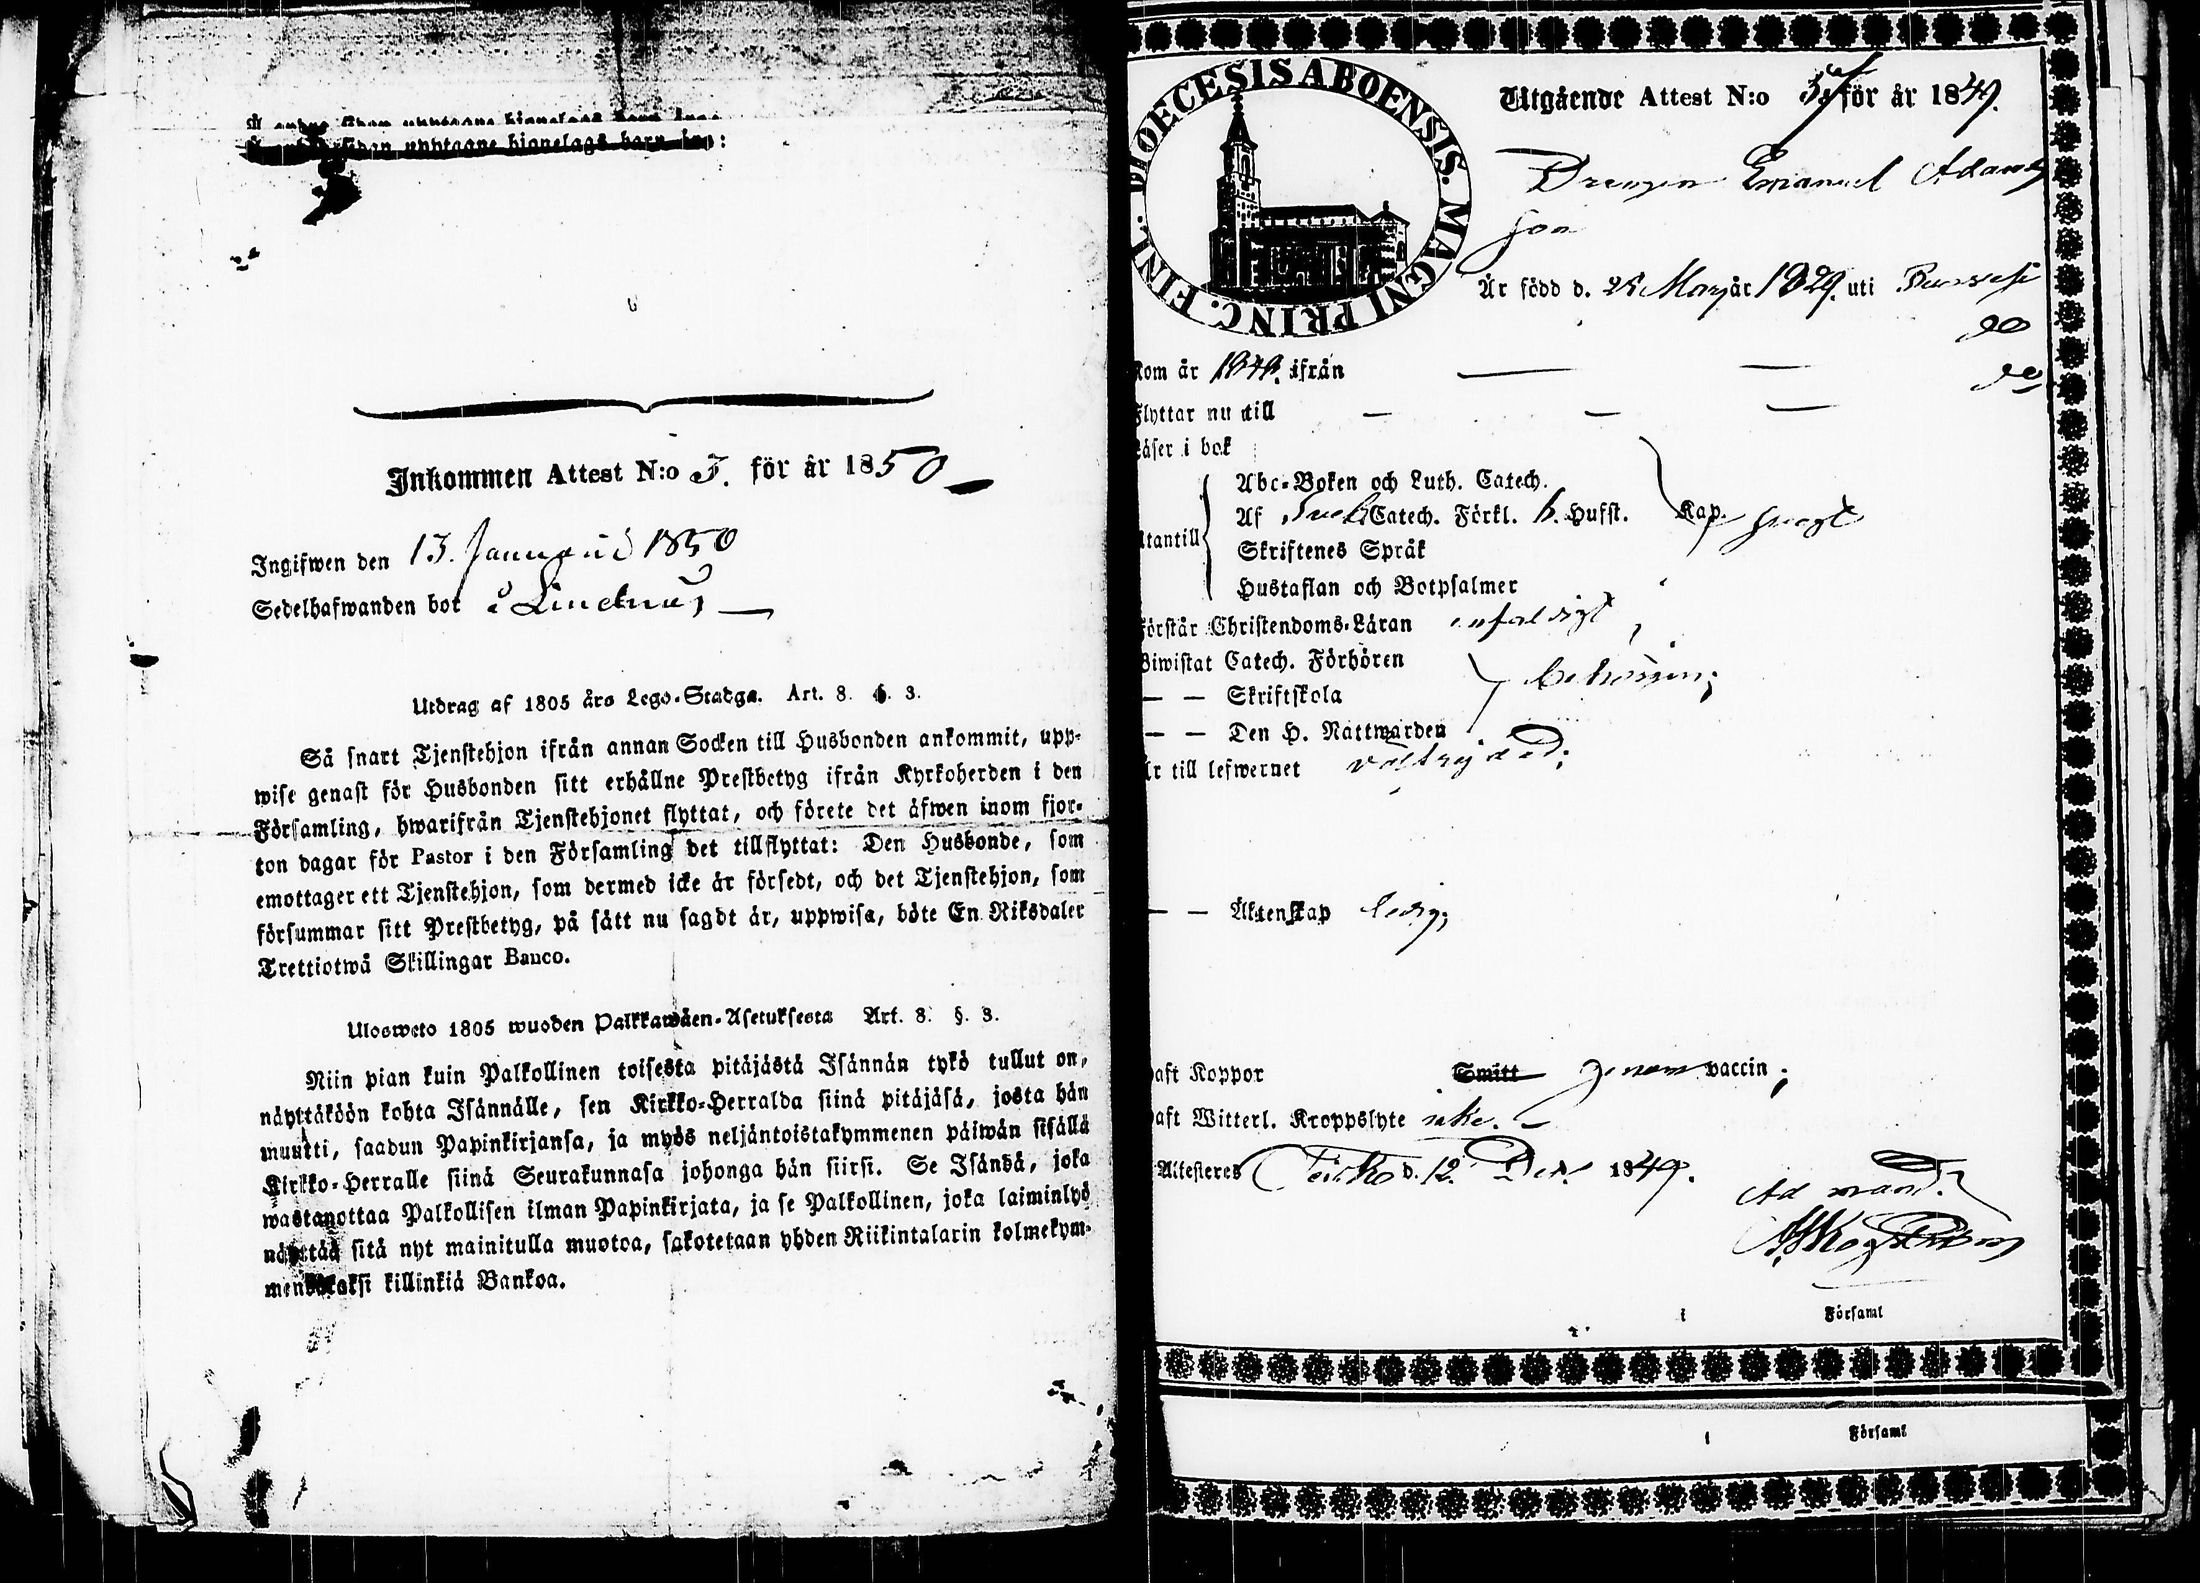 upptagne hionelags barn
Inkommen Attest N:o 3. för år 1850
Ingifwen den 13. Januarii 1850
Sedelhafwanden bor i
Utdrag af 1805 års Lego-Stadga. Art. 8. §. 3.
Så snart Tjenstehjon ifrån annan Socken till Husbonden ankommit, upp-
wise genast för Husbonden sitt erhållne Prestbetyg ifrån Kyrkoherden i den
Församling, hwarifrån Tjenstehjonet flyttat, och förete det äfwen inom fjor-
ton dagar för Pastor i den Församling det tillflyttat: Den Husbonde, som
emottager ett Tjenstehjon, som dermed icke är försedt, och det Tjenstehjon, som
försummar sitt Prestbetyg, på sätt nu sagdt är, uppwisa, böte En Riksdaler
Trettiotwå Skillingar Banco.
Ulosweto 1805 wuoden Palkkawäen-Asetuksesta Art. 8. §. 3.
Niin pian kuin Palkollinen toisesta pitäjästä Isännän tykö tullut on,
näyttäköön kohta Isännälle, sen Kirkko-Herralda siinä pitäjäsä, josta hän
muutti, saadun Papinkirjansa, ja myös neljäntoistakymmenen päiwän sisällä
Kirkko-Herralle siinä Seurakunnasa johonga hän siirsi. Se Isändä, joka
wastanottaa Palkollisen ilman Papinkirjata, ja se Palkollinen, joka laiminlyö
näyttää sitä nyt mainitulla muotoa, sakotetaan yhden Riikintalarin kolmekym-
mendäkaksi killinkiä Bankoa.
DIOECESIS ABOENSIS. MAGNI PRINC. FINL.
Utgående Attest N:o för år 1849.
Drengen Emanuel Adams
son
Är född d. 25 Maij år 1829. uti
Kom år 1849. ifrån
Flyttar nu till
Läser i bok
Abc-Boken och Luth. Catech.
Af Sveb. Catech. Förkl. h. Husst. Kap. svagt
Utantill
Skriftenes Språk
Hustaflan och Botpsalmer
Förstår Christendoms-Läran enfaldigt
Biwistat Catech. Förhören
— — Skriftskola behörigen;
— — Den H. Nattwarden
Är till lefwernet välfrejdad;
— — Äktenskap ledig;
Haft Koppor Smitt genom vaccin;
Haft Witterl. Kroppslyte icke.
Attesteras d. 12. Dec. 1849.
Ad mand.
i Församl
i Församl